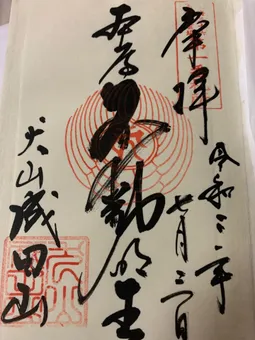 奉拝
令和三年
七月三一日
本尊不動明王
犬山成田山